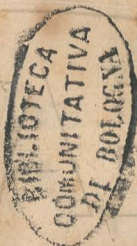 BIBLIOTECA
COMUNITATIVA
DI BOLOGNA